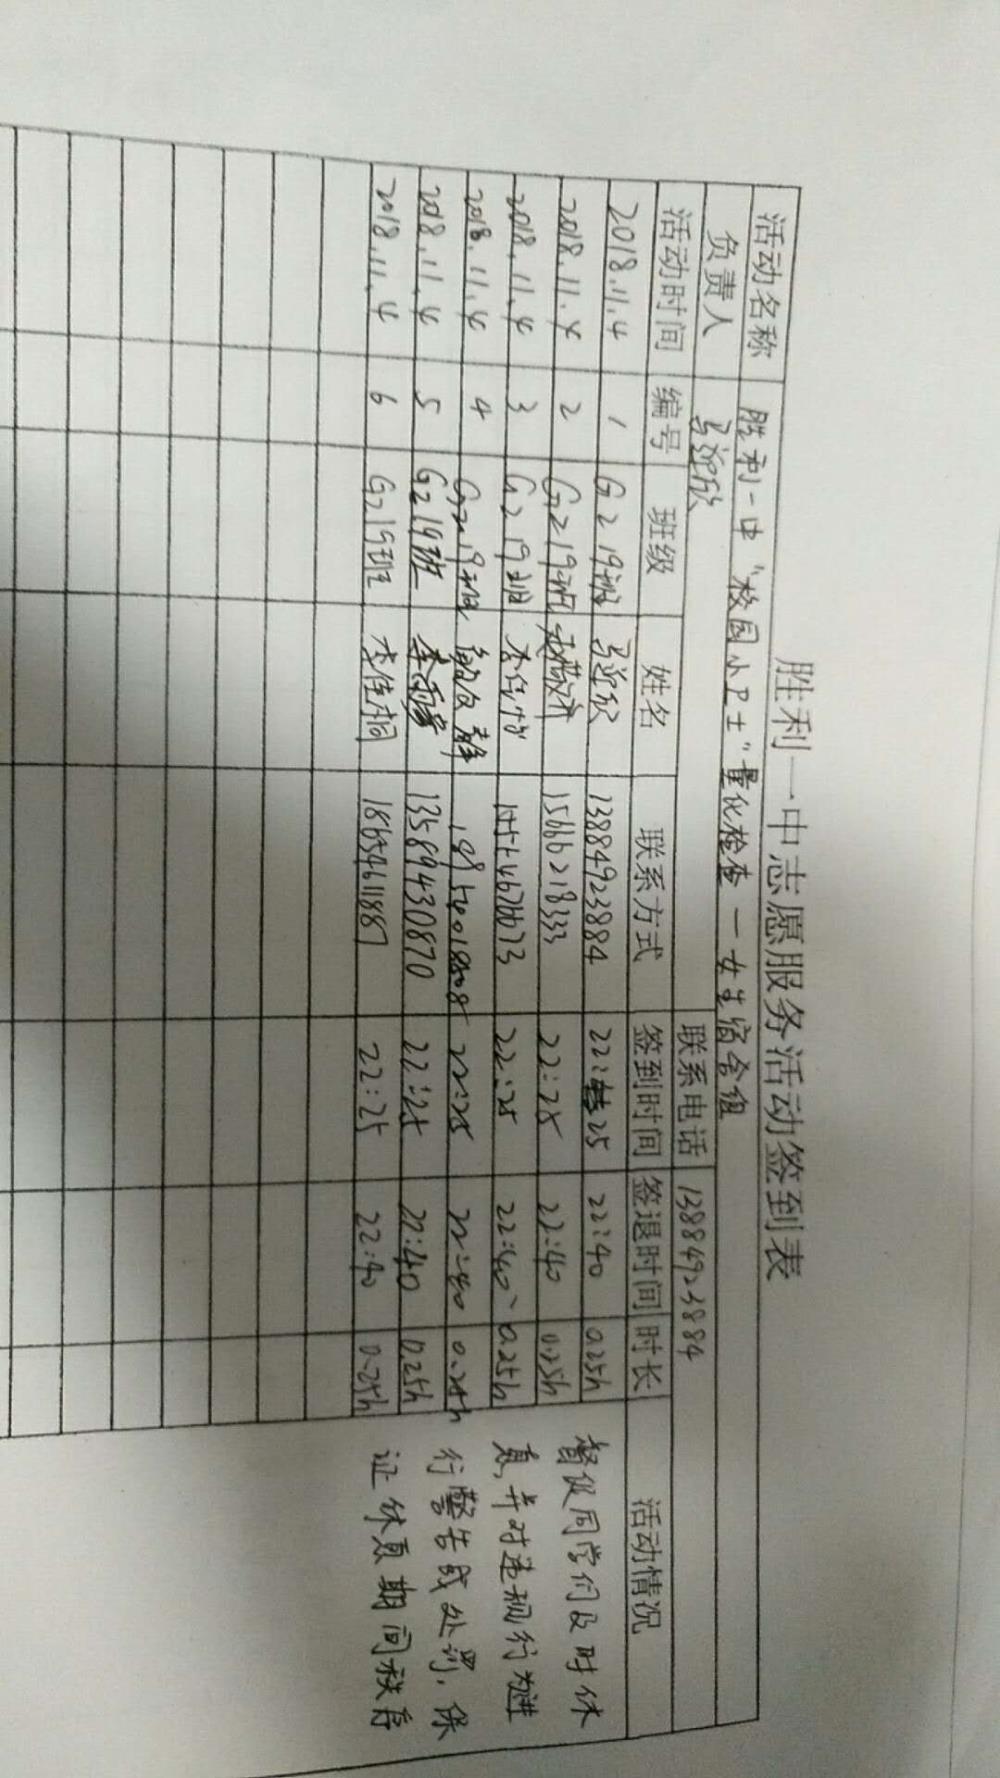 胜利一中志愿服务活动签到表
活动名称 胜利一中“校园小卫士”量化检查—女生宿舍组
负责人 联系电话 13884923884
活动时间 编号 班级 姓名 联系方式 签到时间 签退时间 时长 活动情况
2018.11.4 1 G219班 13884923884 22:25 22:40 0.25h
2018.11.4 2 G219班 15666218333 22:25 22:40 0.25h
2018.11.4 3 G219班 22:25 22:40 0.25h
2018.11.4 4 G219班 22:25 22:40 0.25h
2018.11.4 5 G219班 13589430870 22:25 22:40 0.25h
2018.11.4 6 G219班 李佳桐 18654611887 22:25 22:40 0.25h
督促同学们及时休
息,并对违规行为进
行警告或处罚,保
证休息期间秩序